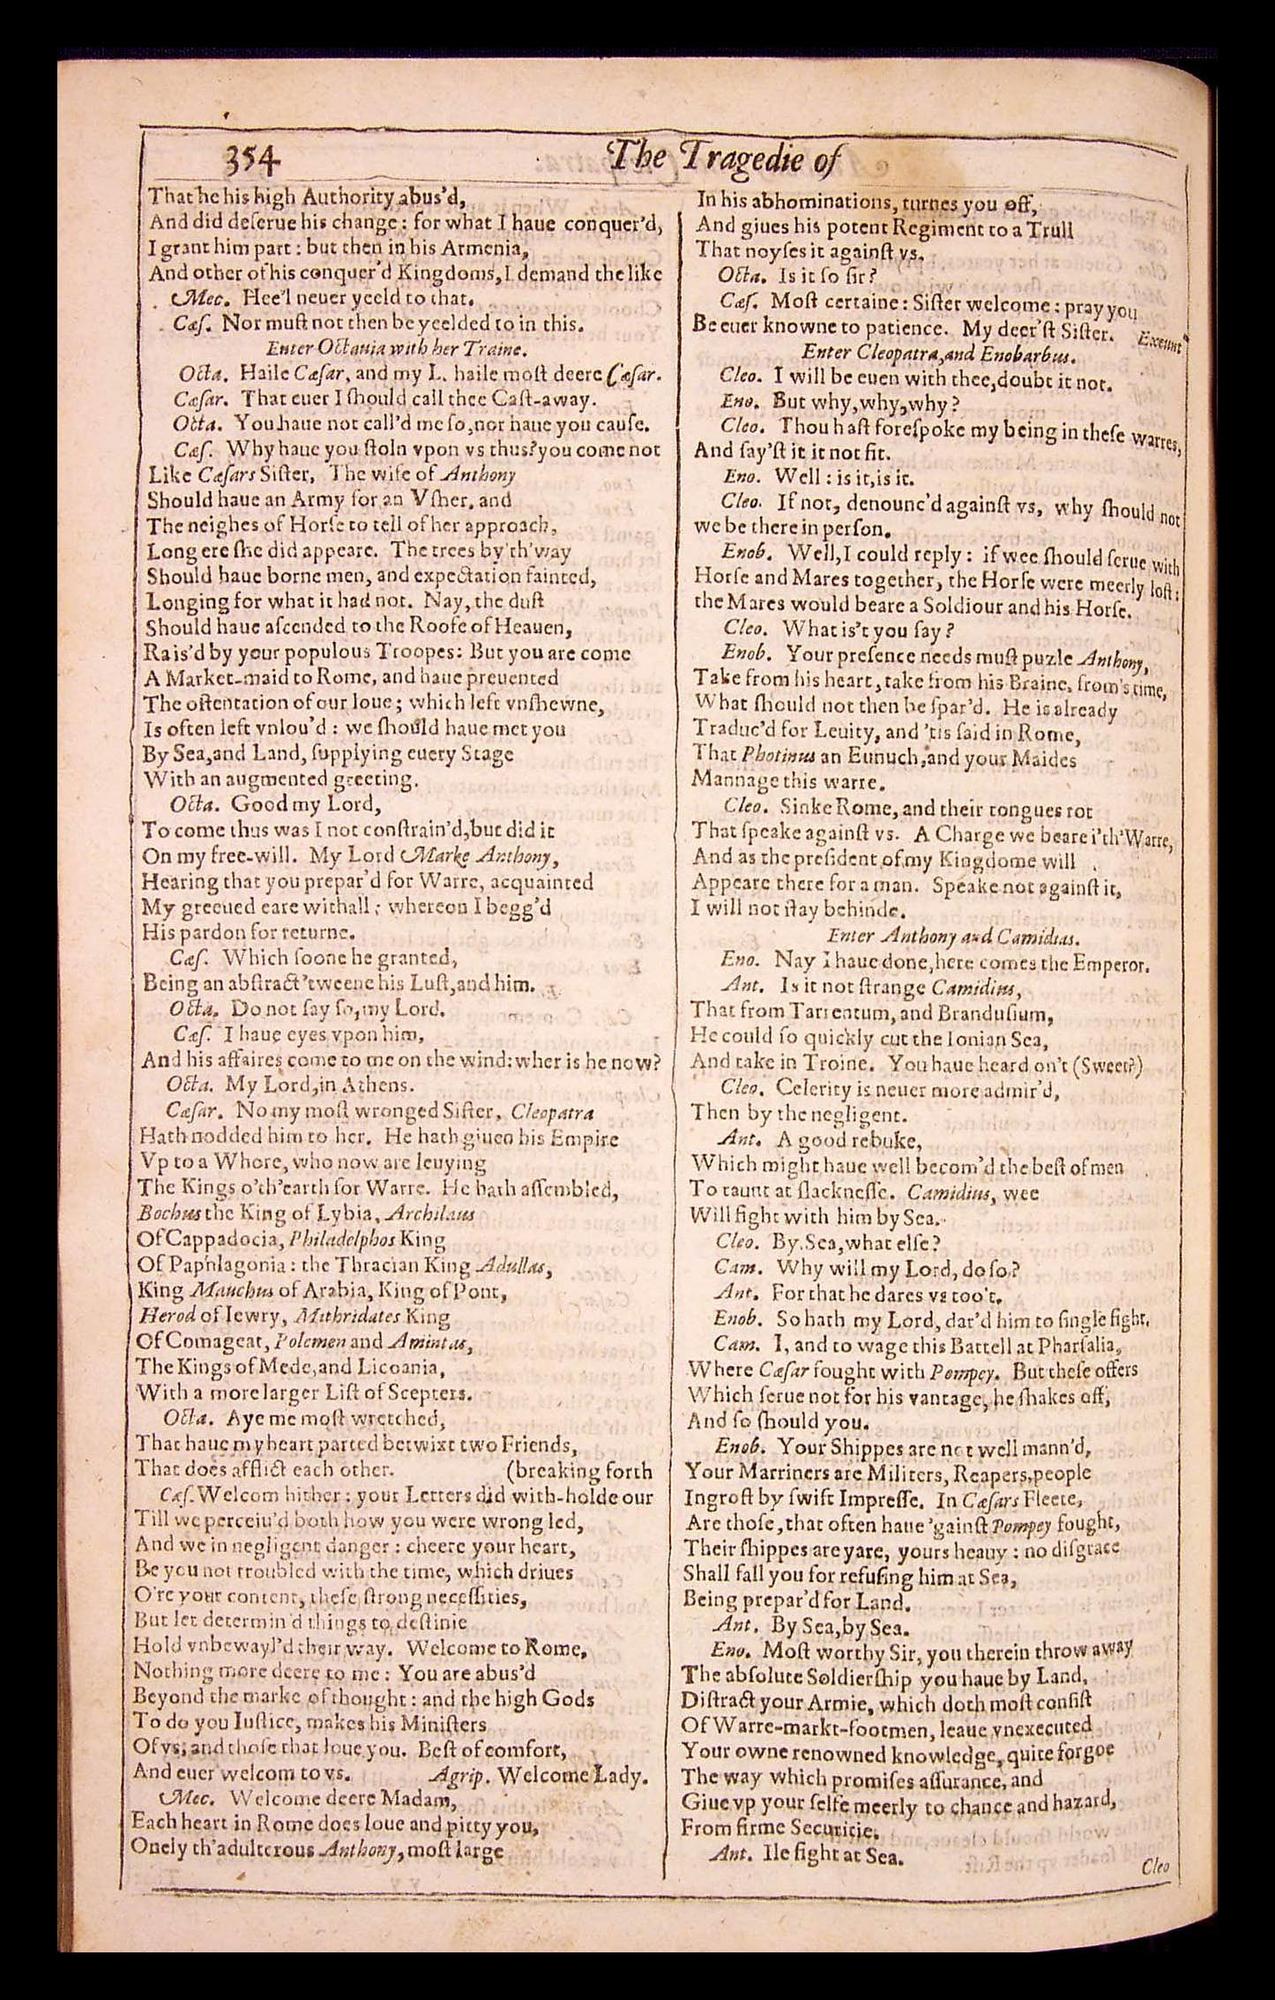 354
The Tragedie of
That he his high Authority abus'd,
And did deſerue his change: for what I haue conquer'd,
I grant him part: but then in his Armenia,
And other of his conquer'd Kingdoms, I demand the like
Mec. Hee'l neuer yeeld to that.
Cæſ. Nor muſt not then be yeelded to in this.
Enter Octauia with her Traine.
Octa. Haile Cæſar, and my L. haile moſt deere Cæſar.
Cæſar. That euer I ſhould call thee Caſt-away.
Octa. You haue not call'd me ſo, nor haue you cauſe.
Cæſ. Why haue you ſtoln vpon vs thus? you come not
Like Cæſars Siſter, The wife of Anthony
Should haue an Army for an Vſher, and
The neighes of Horſe to tell of her approach,
Long ere ſhe did appeare. The trees by'th'way
Should haue borne men, and expectation fainted,
Longing for what it had not. Nay, the duſt
Should haue aſcended to the Roofe of Heauen,
Rais'd by your populous Troopes: But you are come
A Market-maid to Rome, and haue preuented
The oſtentation of our loue; which left vnſhewne,
Is often left vnlou'd: we ſhould haue met you
By Sea, and Land, ſupplying euery Stage
With an augmented greeting.
Octa. Good my Lord,
To come thus was I not conſtrain'd, but did it
On my free-will. My Lord Marke Anthony,
Hearing that you prepar'd for Warre, acquainted
My greeued eare withall: whereon I begg'd
His pardon for returne.
Cæſ. Which ſoone he granted,
Being an abſtract 'tweene his Luſt, and him.
Octa. Do not ſay ſo, my Lord.
Cæſ. I haue eyes vpon him,
And his affaires come to me on the wind: wher is he now?
Octa. My Lord, in Athens.
Cæſar. No my moſt wronged Siſter, Cleopatra
Hath nodded him to her. He hath giuen his Empire
Vp to a Whore, who now are leuying
The Kings o'th'earth for Warre. He hath aſſembled,
Bochus the King of Lybia, Archilaus
Of Cappadocia, Philadelphos King
Of Paphlagonia: the Thracian King Adullas,
King Mauchus of Arabia, King of Pont,
Herod of Iewry, Mithridates King
Of Comageat, Polemen and Amintas,
The Kings of Mede, and Licoania,
With a more larger Liſt of Scepters.
Octa. Aye me moſt wretched,
That haue my heart parted betwixt two Friends,
That does afflict each other. (breaking forth
Cæſ. Welcom hither: your Letters did with-holde our
Till we perceiu'd both how you were wrong led,
And we in negligent danger: cheere your heart,
Be you not troubled with the time, which driues
O're your content, theſe ſtrong neceſſities,
But let determin'd things to deſtinie
Hold vnbewayl'd their way. Welcome to Rome,
Nothing more deere to me: You are abus'd
Beyond the marke of thought: and the high Gods
To do you Iuſtice, makes his Miniſters
Of vs, and thoſe that loue you. Beſt of comfort,
And euer welcom to vs. Agrip. Welcome Lady.
Mec. Welcome deere Madam,
Each heart in Rome does loue and pitty you,
Onely th'adulterous Anthony, moſt large
In his abhominations, turnes you off,
And giues his potent Regiment to a Trull
That noyſes it againſt vs.
Octa. Is it ſo ſir?
Cæſ. Moſt certaine: Siſter welcome: pray you
Be euer knowne to patience. My deer'ſt Siſter. Exeunt
Enter Cleopatra, and Enobarbus.
Cleo. I will be euen with thee, doubt it not.
Eno. But why, why, why?
Cleo. Thou haſt foreſpoke my being in theſe warres,
And ſay'ſt it it not fit.
Eno. Well: is it, is it.
Cleo. If not, denounc'd againſt vs, why ſhould not
we be there in perſon.
Enob. Well, I could reply: if wee ſhould ſerue with
Horſe and Mares together, the Horſe were meerly loſt:
the Mares would beare a Soldiour and his Horſe.
Cleo. What is't you ſay?
Enob. Your preſence needs muſt puzle Anthony,
Take from his heart, take from his Braine, from's time,
What ſhould not then be ſpar'd. He is already
Traduc'd for Leuity, and 'tis ſaid in Rome,
That Photinus an Eunuch, and your Maides
Mannage this warre.
Cleo. Sinke Rome, and their tongues rot
That ſpeake againſt vs. A Charge we beare i'th'Warre,
And as the preſident of my Kingdome will
Appeare there for a man. Speake not againſt it,
I will not ſtay behinde.
Enter Anthony and Camidias.
Eno. Nay I haue done, here comes the Emperor.
Ant. Is it not ſtrange Camidius,
That from Tarrentum, and Branduſium,
He could ſo quickly cut the Ionian Sea,
And take in Troine. You haue heard on't (Sweet?)
Cleo. Celerity is neuer more admir'd,
Then by the negligent.
Ant. A good rebuke,
Which might haue well becom'd the beſt of men
To taunt at ſlackneſſe. Camidius, wee
Will fight with him by Sea.
Cleo. By Sea, what elſe?
Cam. Why will my Lord, do ſo?
Ant. For that he dares vs too't.
Enob. So hath my Lord, dar'd him to ſingle fight.
Cam. I, and to wage this Battell at Pharſalia,
Where Cæſar fought with Pompey. But theſe offers
Which ſerue not for his vantage, he ſhakes off,
And ſo ſhould you.
Enob. Your Shippes are not well mann'd,
Your Marriners are Militers, Reapers, people
Ingroſt by ſwift Impreſſe. In Cæſars Fleete,
Are thoſe, that often haue 'gainſt Pompey fought,
Their ſhippes are yare, yours heauy: no diſgrace
Shall fall you for refuſing him at Sea,
Being prepar'd for Land.
Ant. By Sea, by Sea.
Eno. Moſt worthy Sir, you therein throw away
The abſolute Soldierſhip you haue by Land,
Diſtract your Armie, which doth moſt conſiſt
Of Warre-markt-footmen, leaue vnexecuted
Your owne renowned knowledge, quite forgoe
The way which promiſes aſſurance, and
Giue vp your ſelfe meerly to chance and hazard,
From firme Securitie.
Ant. Ile fight at Sea.
Cleo